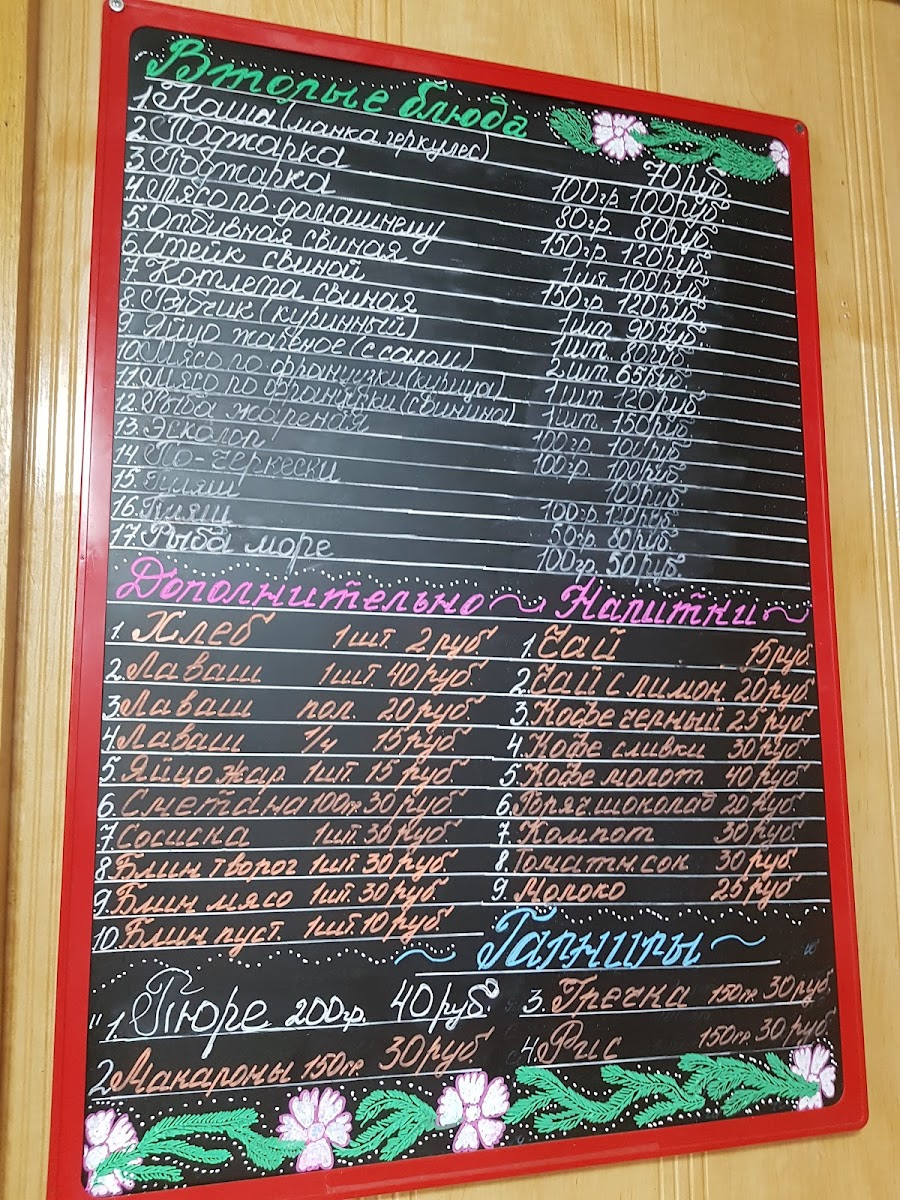 Вторые блюда
1 Каша (манка, геркулес) 70 руб.
2 Поджарка 100 гр. 100 руб
3. Поджарка 80 гр. 80 руб.
4. Мясо по-домашнему 150 гр. 120 руб.
5. Отбивная свиная 1 шт. 100 руб.
6. Стейк свиной 150 гр. 120 руб.
7 Котлета свиная 1 шт. 90 руб.
8. Рябчик (куринный) 1 шт. 80 руб.
9. Яйцо жареное (с салом) 2 шт. 65 руб.
10. Мясо по французки (курица) 1 шт 120 руб.
11. Мясо по французки (свинина) 1 шт. 150 руб
12. Рыба жареная 100 гр. 100 руб
13. Эскалоп 100 гр. 100 руб.
14. По-черкески 100 руб
15. Гуляш 100 гр. 120 руб.
16. Гуляш 50 гр. 80 руб.
17. Рыба море 100 гр. 50 руб.
Дополнительно
1. Хлеб 1 шт. 2 руб
2. Лаваш 1 шт 40 руб.
3. Лаваш пол. 20 руб.
4. Лаваш 1/4 15 руб.
5. Яйцо жар 1 шт. 15 руб.
6. Сметана 100 гр. 30 руб.
7. Сосиска 1 шт. 30 руб.
8 Блин творог 1 шт. 30 руб.
9. Блин мясо 1 шт. 30 руб.
10. Блин пуст. 1 шт. 10 руб.
Напитки
1. Чай 15 руб.
2. Чай с лимон 20 руб
3. Кофе черный 25 руб.
4. Кофе сливки 30 руб.
5. Кофе молот 40 руб.
6. Горяч. шоколад 20 руб.
7. Компот 30 руб.
8. Томатн. сок 30 руб.
9. Молоко 25 руб.
Гарниры
1. Пюре 200 гр. 40 руб.
2. Макароны 150 гр 30 руб
3. Гречка 150 гр. 30 руб.
4. Рис 150 гр. 30 руб.